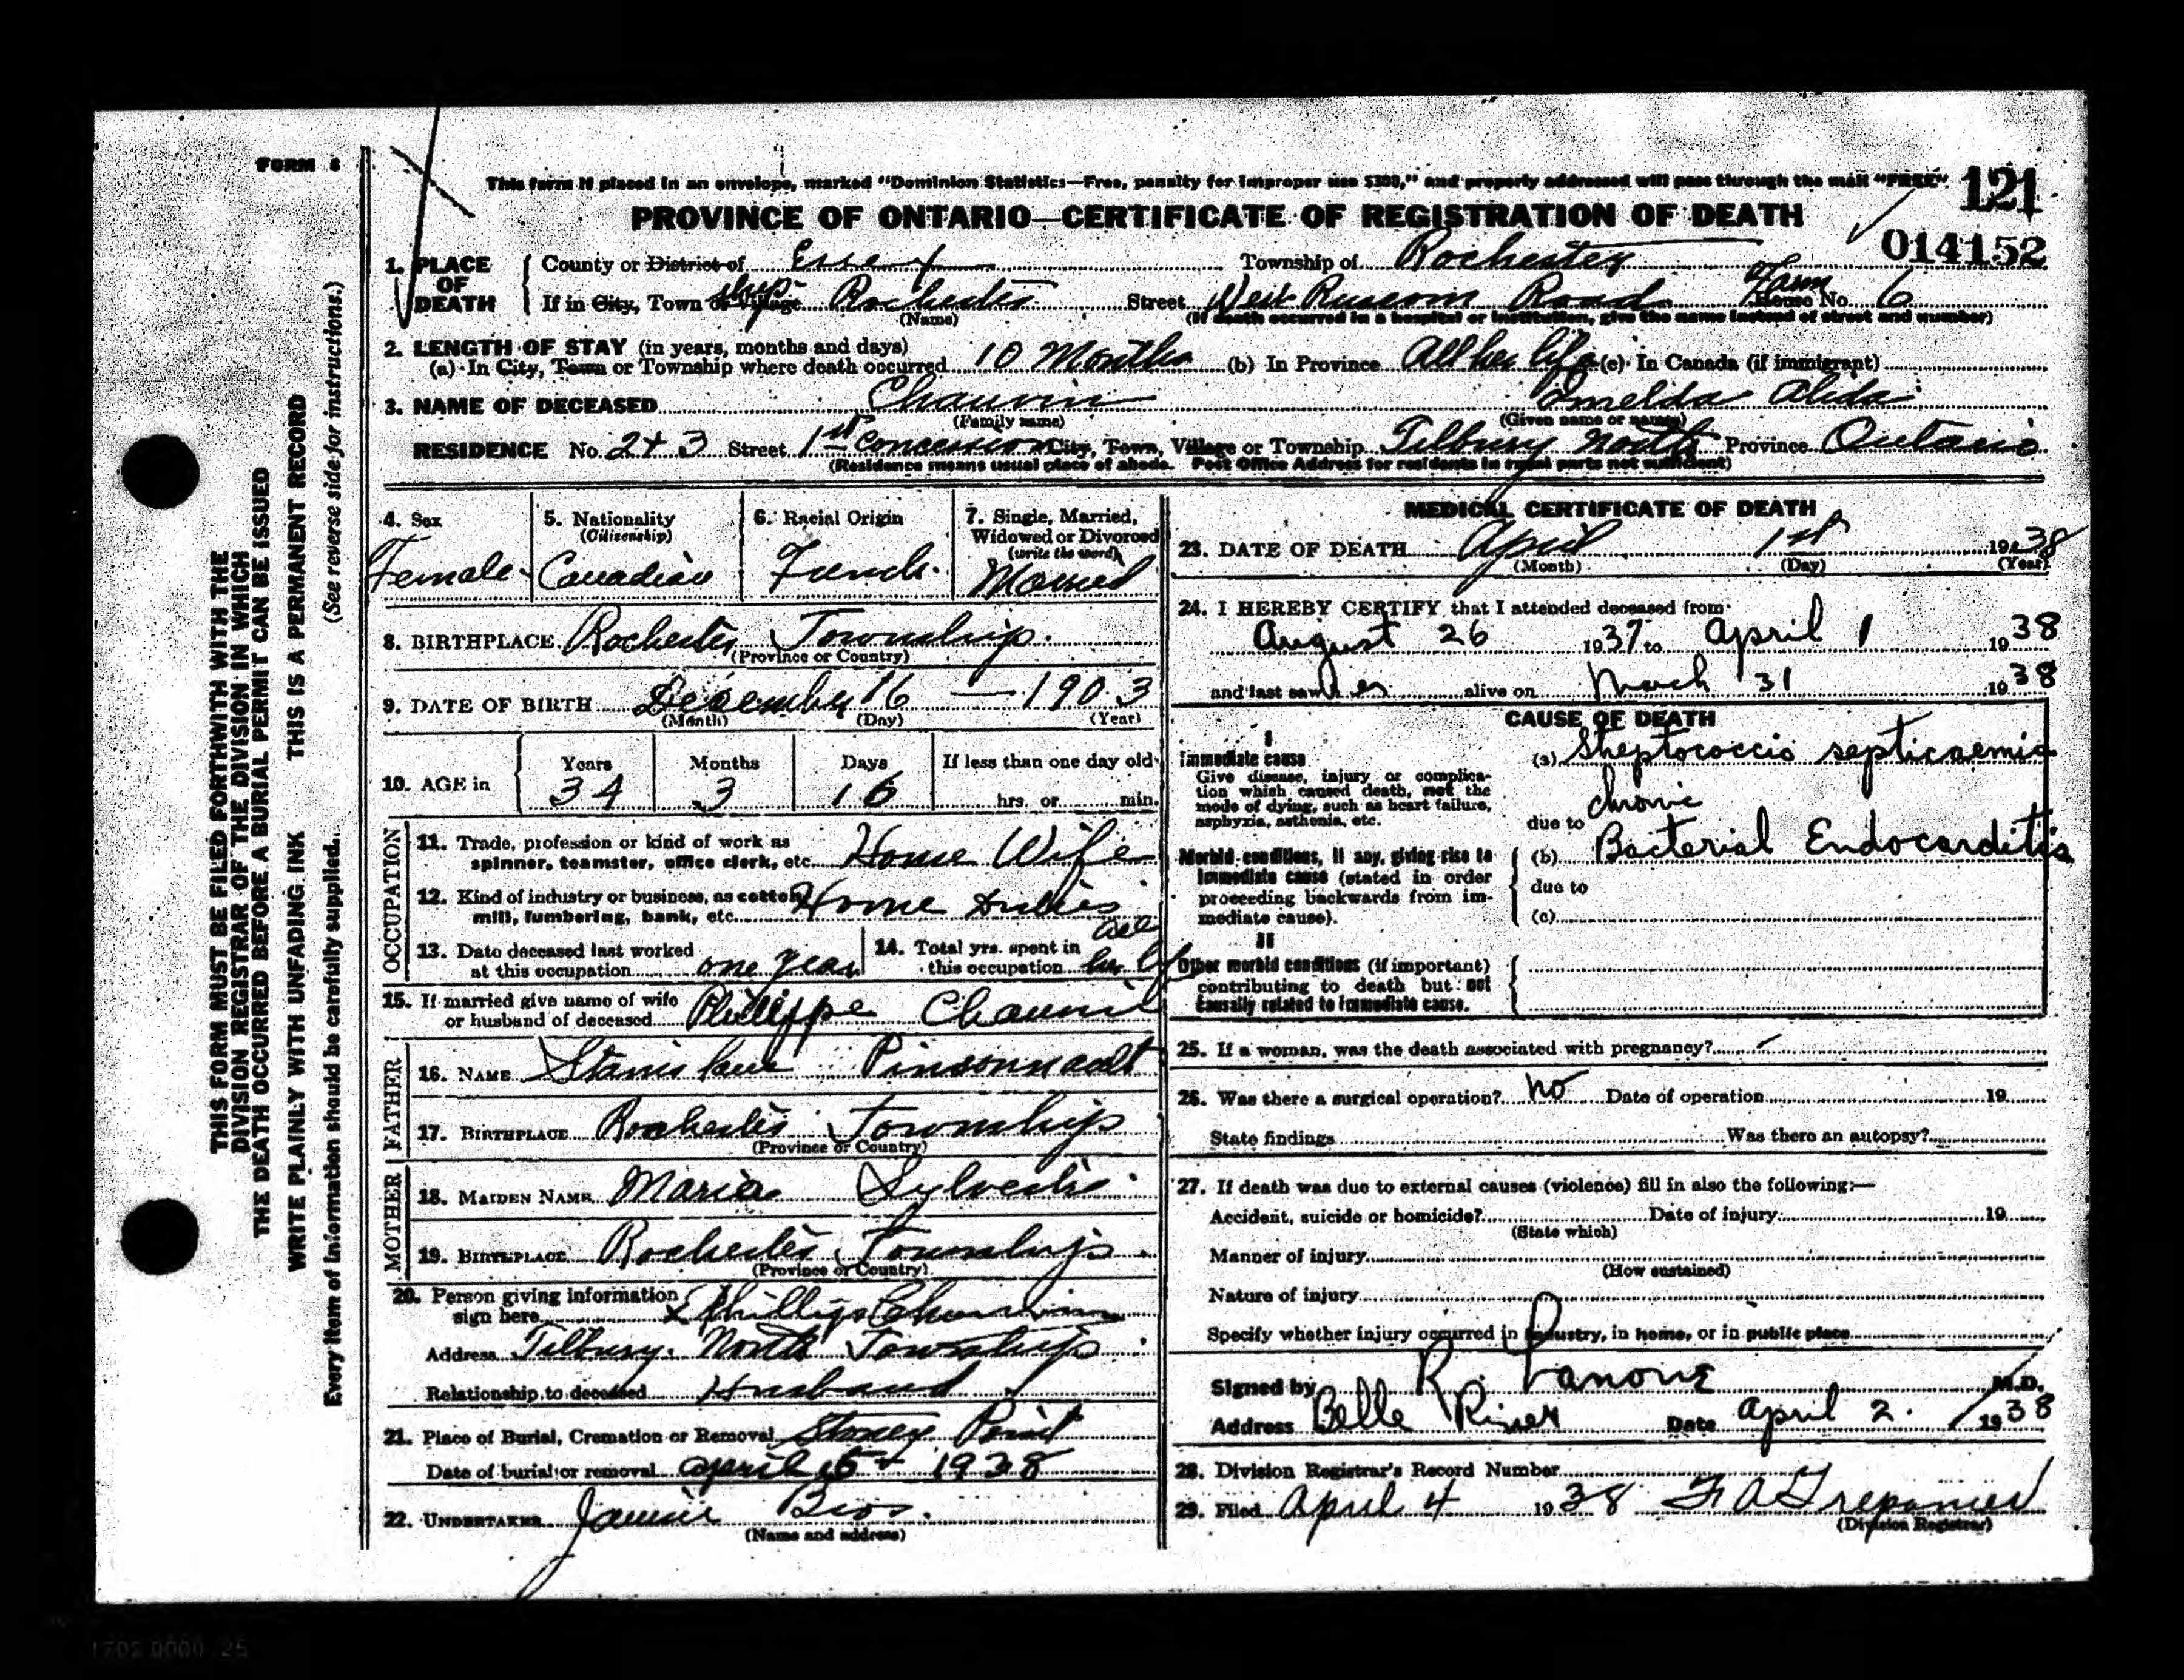 FORM 8
This form if placed in an envelope, marked "Dominion Statistics—Free, penalty for improper use $300," and properly addressed will pass through the mail "FREE"
121
PROVINCE OF ONTARIO—CERTIFICATE OF REGISTRATION OF DEATH
014152
1. PLACE OF DEATH
County or District of Essex Township of Rochester
If in City, Town or Village ship Rochester Street West Ruscom Road Farm House No. 6
(Name) (If death occurred in a hospital or institution, give the name instead of street and number)
2. LENGTH OF STAY (in years, months and days)
(a) In City, Town or Township where death occurred 10 Months (b) In Province All her life (c) In Canada (if immigrant)
3. NAME OF DECEASED Chauvin Imelda Alida
(Family name) (Given name or names)
RESIDENCE No. 2+3 Street 1st Concession City, Town, Village or Township Tilbury North Province Ontario
(Residence means usual place of abode. Post Office Address for residents in rural parts not sufficient)
4. Sex
Female
5. Nationality
(Citizenship)
Canadian
6. Racial Origin
French
7. Single, Married,
Widowed or Divorced
(write the word)
Married
8. BIRTHPLACE Rochester Township
(Province or Country)
9. DATE OF BIRTH December 16 — 1903
(Month) (Day) (Year)
10. AGE in
Years Months Days If less than one day old
34 3 16 hrs. or min.
OCCUPATION
11. Trade, profession or kind of work as
spinner, teamster, office clerk, etc. House Wife
12. Kind of industry or business, as cotton
mill, lumbering, bank, etc. Home Duties
13. Date deceased last worked
at this occupation one year
14. Total yrs. spent in
this occupation all her life
15. If married give name of wife
or husband of deceased Phillippe Chauvin
FATHER
16. NAME Stanislaus Pinsonneault
17. BIRTHPLACE Rochester Township
(Province or Country)
MOTHER
18. MAIDEN NAME Maria Sylvestre
19. BIRTHPLACE Rochester Township
(Province or Country)
20. Person giving information
sign here x Phillip Chauvin
Address Tilbury North Township
Relationship to deceased Husband
21. Place of Burial, Cremation or Removal Stoney Point
Date of burial or removal April 5th 1938
22. UNDERTAKER Bros.
(Name and address)
MEDICAL CERTIFICATE OF DEATH
23. DATE OF DEATH April 1st 1938
(Month) (Day) (Year)
24. I HEREBY CERTIFY that I attended deceased from
August 26 1937 to April 1 1938
and last saw her alive on March 31 1938
CAUSE OF DEATH
I
Immediate cause
Give disease, injury or complica-
tion which caused death, not the
mode of dying, such as heart failure,
asphyxia, asthenia, etc.
(a) Streptococcic septicaemia
chronic
due to
Morbid conditions, if any, giving rise to
immediate cause (stated in order
proceeding backwards from im-
mediate cause).
(b) Bacterial Endocarditis
due to
(c)
II
Other morbid conditions (if important)
contributing to death but not
causally related to immediate cause.
25. If a woman, was the death associated with pregnancy? -
26. Was there a surgical operation? No Date of operation 19
State findings Was there an autopsy?
27. If death was due to external causes (violence) fill in also the following:—
Accident, suicide or homicide? Date of injury 19
(State which)
Manner of injury
(How sustained)
Nature of injury
Specify whether injury occurred in industry, in home, or in public place
Signed by R. Lanoue M.D.
Address Belle River Date April 2. 1938
28. Division Registrar's Record Number
29. Filed April 4 1938 F A Trepanier
(Division Registrar)
THIS FORM MUST BE FILED FORTHWITH WITH THE
DIVISION REGISTRAR OF THE DIVISION IN WHICH
THE DEATH OCCURRED BEFORE A BURIAL PERMIT CAN BE ISSUED
WRITE PLAINLY WITH UNFADING INK THIS IS A PERMANENT RECORD
Every item of information should be carefully supplied. (See reverse side for instructions.)